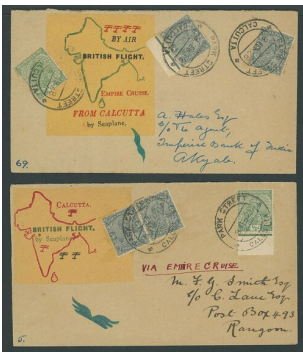 BY AIR
BRITISH FLIGHT,
EMPIRE CRUISE.
FROM CALCUTTA
by Seaplane.
STREET
CALCUTTA
A. Hales Esq
c/o The Agent,
Imperial Bank of India
Akyab.
69.
CALCUTTA.
BRITISH FLIGHT,
by Seaplane.
PARK STREET
VIA EMPIRE CRUISE
M. F. G. Smith Esq
c/o C. Lane Esq.
Post Box 493
Rangoon.
5.